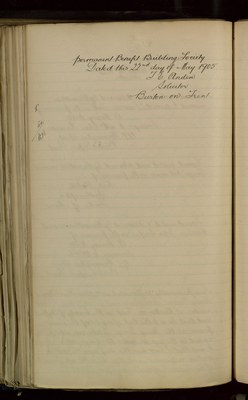 permanent Benefit Building Society
Dated this 22nd day of May 1903
Solicitor
Burton on Trent